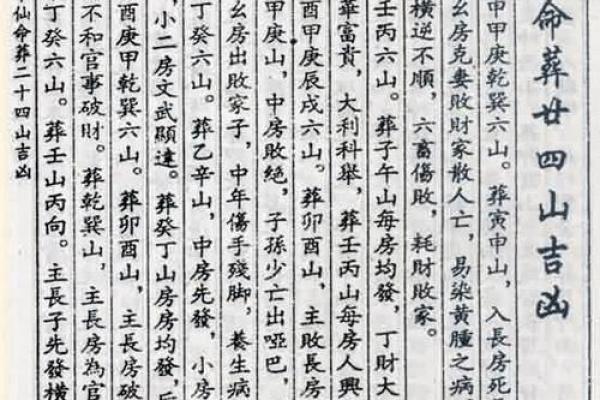 命葬廿四山吉凶
申甲庚乾巽六山。葬寅申山,入長房死
幺房克妻敗財家散人亡,易染黃腫之病
橫逆不順,六畜傷敗,耗財敗家。
壬丙六山。葬子午山每房均發,丁財大
華富貴,大利科舉,葬壬丙山每房人興
酉甲庚辰戌六山。葬卯酉山,主敗長房
甲庚山,中房敗絕,子孫少亡出啞巴,
幺房出敗家子,中年傷手殘腳,養生病
丁癸六山。葬乙辛山,中房先發,小房
,小二房文武顯達。葬癸丁山房房均發,
酉庚甲乾巽六山。葬卯酉山,主長房破
不和官事破財。葬乾巽山,主長房為官
丁癸六山。葬壬山丙向。主長子先發橫
仙命葬二十四山吉凶